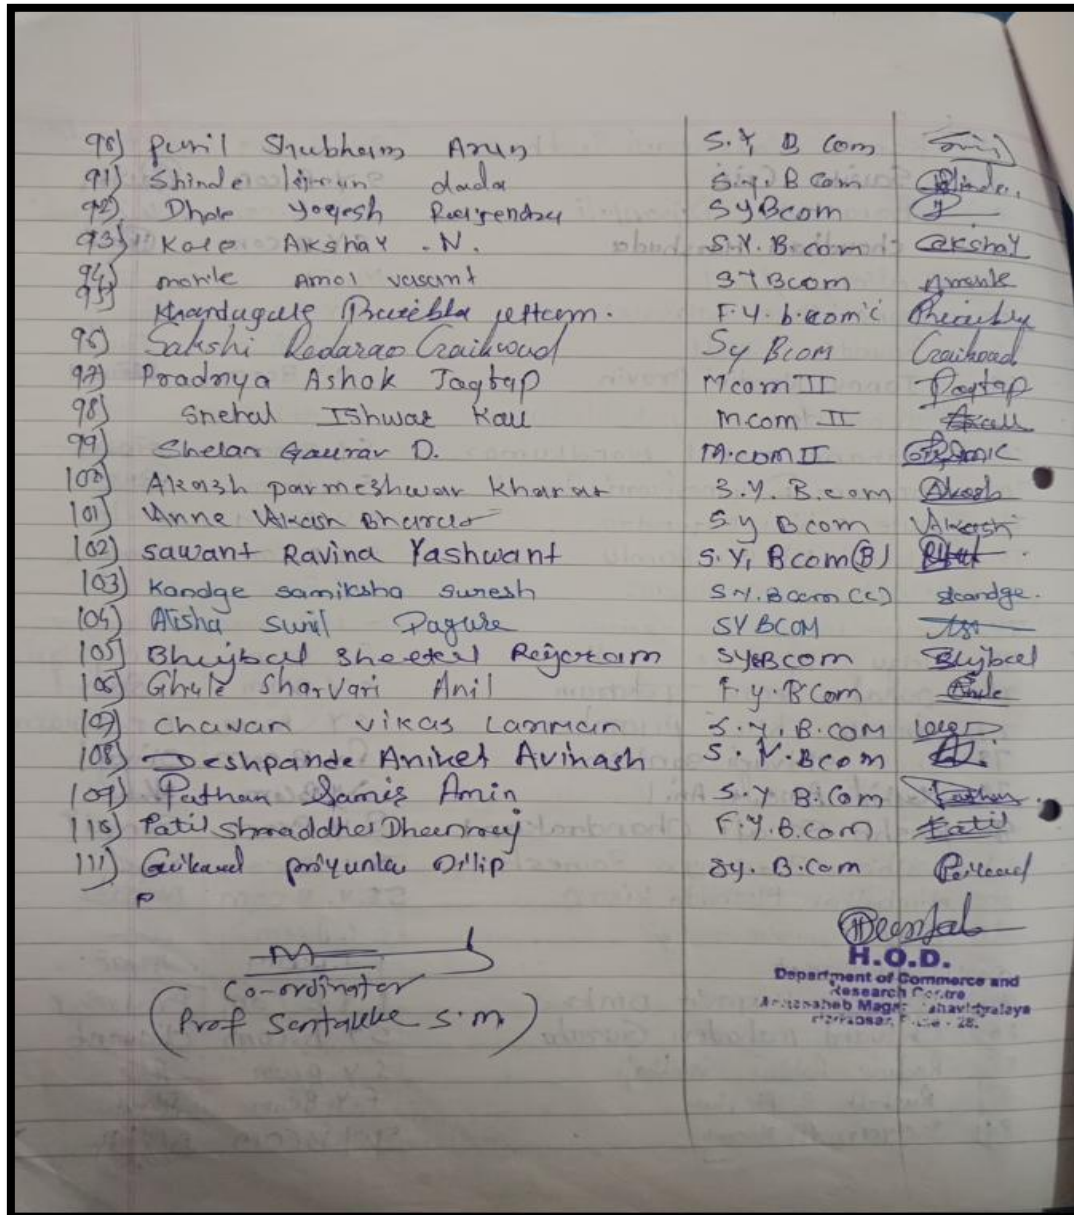 90) Shubham Arun S.Y. B Com
91) Shinde dada S.Y. B Com
92) Dhole Yogesh SYBcom
93) Kale Akshay .N. S.Y. B.com Aakshay
94) morile Amol vasant SYBcom
95) F.Y. b.com 'c'
96) Sakshi Gaikwad Sy Bcom Gaikwad
97) Pradnya Ashok Jagtap Mcom II Jagtap
98) Snehal Ishwar Kall M.com II
99) Shelar Gaurav D. M.com II
100) Akash parmeshwar Kharat S.Y. B.com Akash
101) Anne Akash Bharat S.y Bcom Akash
102) Sawant Ravina Yashwant S.Y, Bcom (B)
103) Kandge samiksha suresh S.Y. Bcom (c) skandge.
104) Alisha Sunil Pagure SYBCOM
105) Bhujbal Sheetal Rajaram SYBcom Bhujbal
106) Ghule Sharvari Anil F.y.B'Com
107) Chavan vikas Lanman S.Y.B.COM
108) Deshpande Aniket Avinash S.Y.Bcom
109) Pathan Samir Amin S.Y B.Com Pathan
110) Patil Shraddha Dhanraj F.Y.B.com Patil
111) Gaikwad priyanka Dilip Sy. B.Com
H.O.D.
Department of Commerce and
Research Centre
Annasaheb Magar Mahavidyalaya
Hadapsar, Pune - 28.
Co-ordinator
(Prof Santakke S.M.)